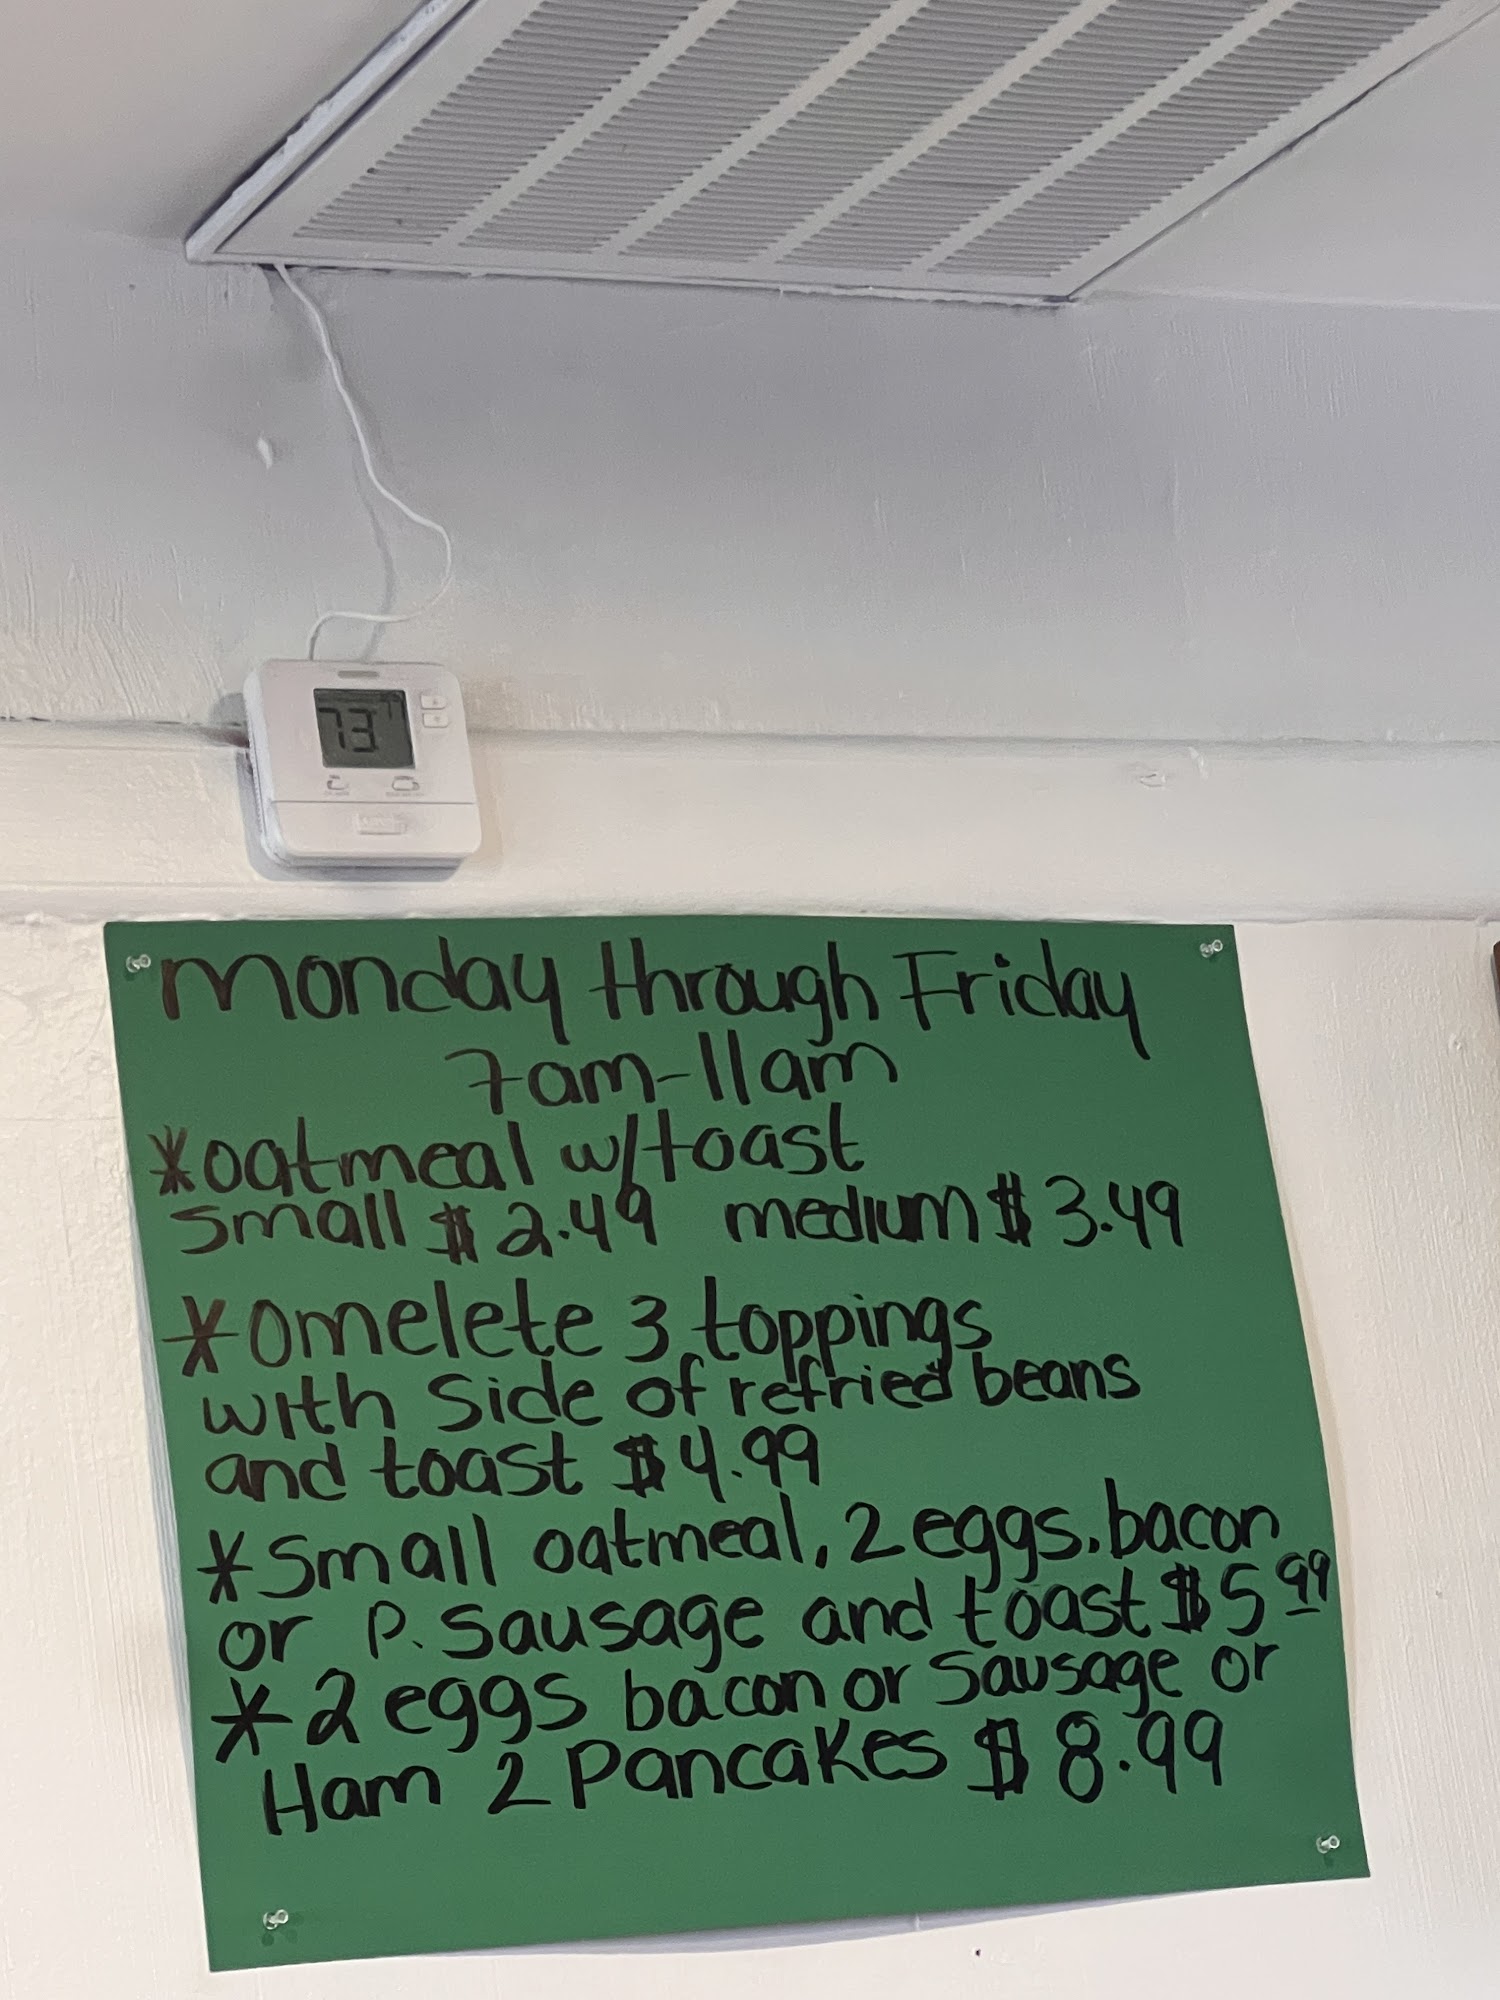 73
monday through Friday
7am-11am
*oatmeal w/toast
small $2.49 medium $3.49
*omelete 3 toppings
with side of refried beans
and toast $4.99
*small oatmeal, 2 eggs, bacon
or P. sausage and toast $5.99
*2 eggs bacon or sausage or
Ham 2 Pancakes $8.99